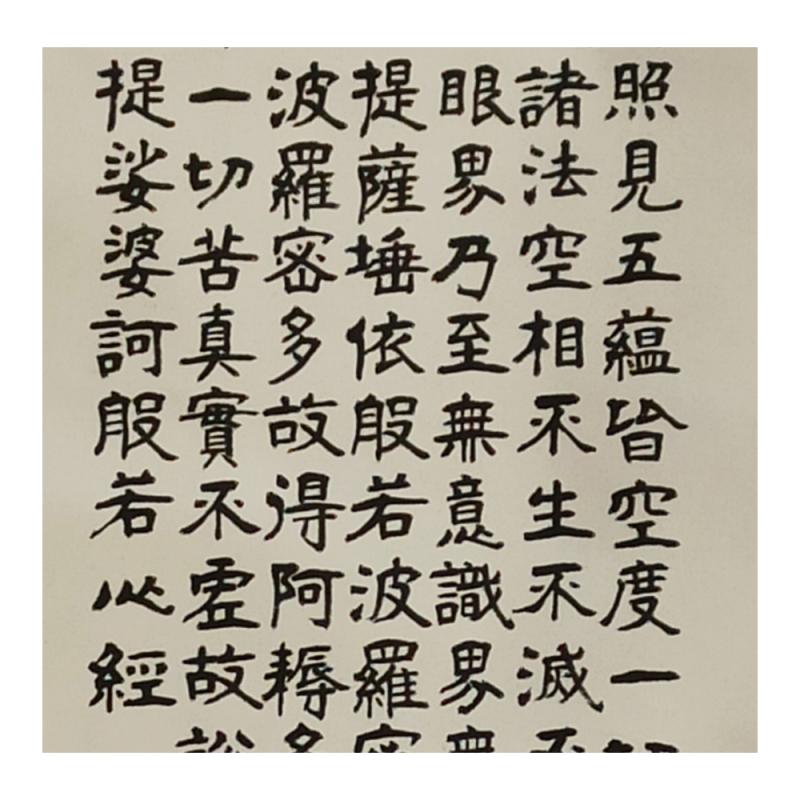 照見五蘊皆空度一切
諸法空相不生不滅不
眼界乃至無意識界無
提薩埵依般若波羅密
波羅密多故得阿耨多
一切苦真實不虛故說
提娑婆訶般若心經